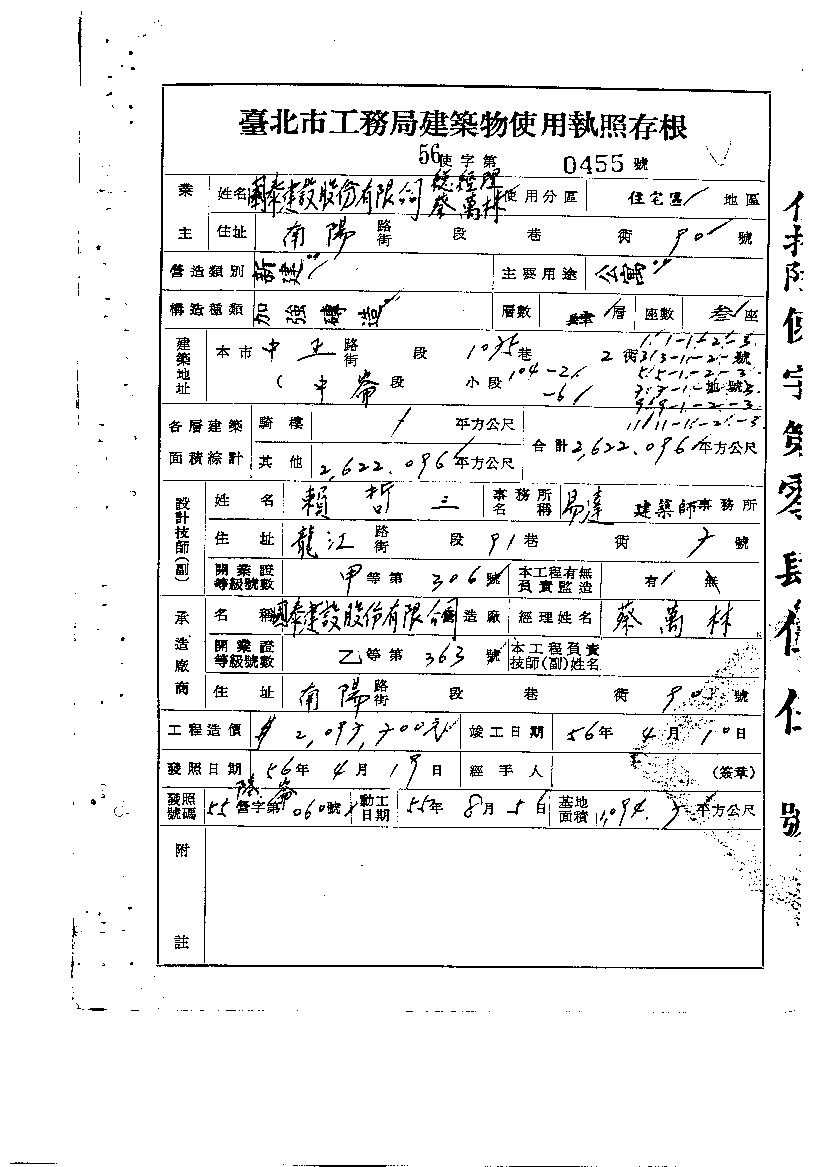 臺北市工務局建築物使用執照存根
56使字第 0455號
業主 姓名 國泰建設股份有限公司 總經理 蔡萬林 使用分區 住宅區 地區
住址 南陽 路街 段 巷 衖 90 號
營造類別 新建 主要用途 公寓
構造種類 加強磚造 層數 肆 層 座數 叁 座
建築地址 本市 中正 路街 段 巷 2 衖 號
(中崙段 小段 104-2 -6 地號
各層建築面積綜計 騎樓 / 平方公尺 合計 2,622.096 平方公尺
其他 2,622.096 平方公尺
設計技師(副) 姓名 賴哲三 事務所名稱 易達 建築師事務所
住址 龍江 路街 段 91 巷 衖 號
開業證等級號數 甲等第 306 號 本工程有無負責監造 有 無
承造廠商 名稱 國泰建設股份有限公司 營造廠 經理姓名 蔡萬林
開業證等級號數 乙等第 363 號 本工程負責技師(副)姓名
住址 南陽 路街 段 巷 衖 90 號
工程造價 竣工日期 56年 4月 10日
發照日期 56年 4月 19日 經手人 (簽章)
發照號碼 55 營字第 060號 動工日期 55年 8月 5日 基地面積 平方公尺
附註
使字第零
號